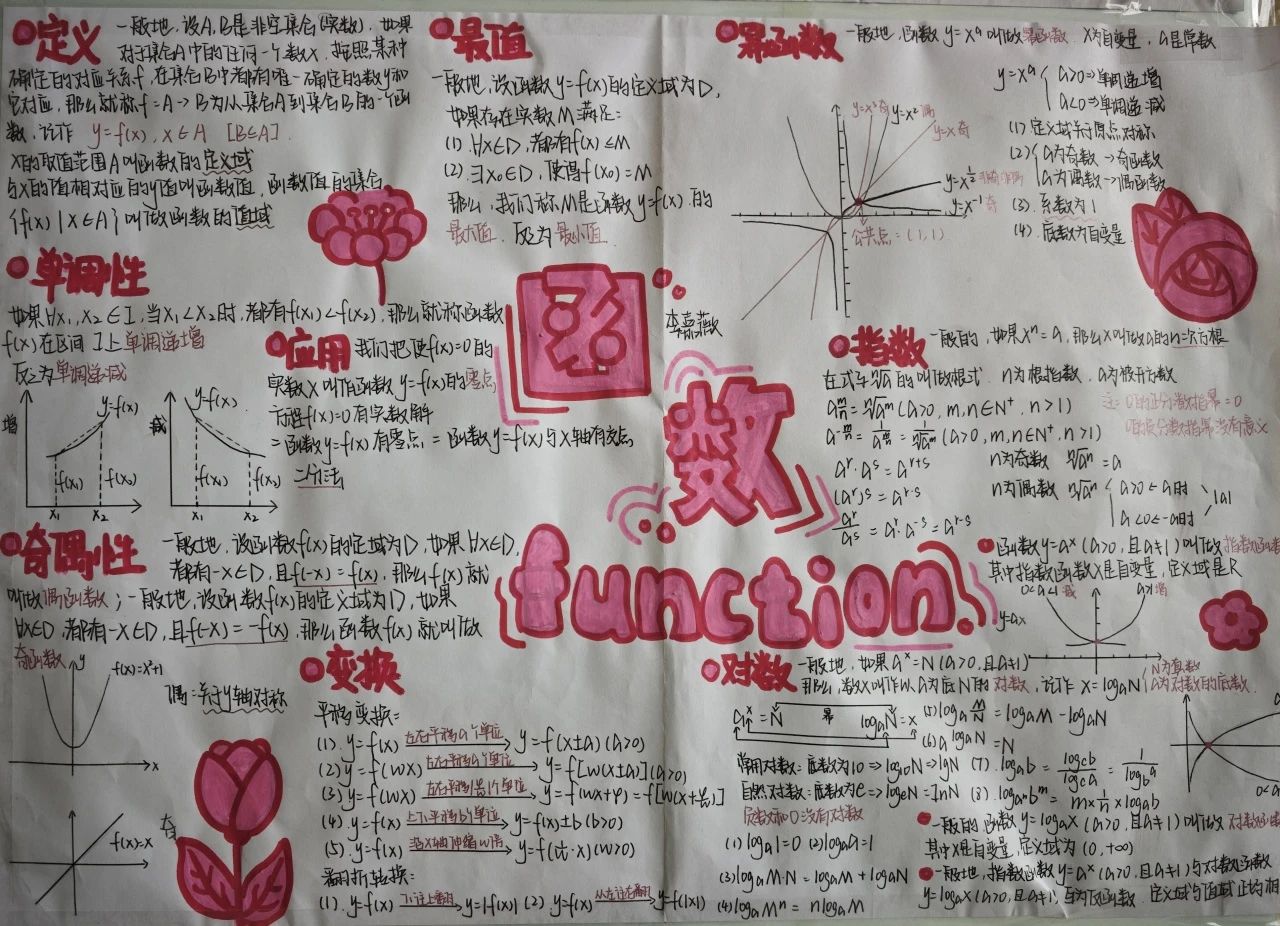 定义 一般地,设A,B是非空集合(实数),如果
对于集合A中的任何一个数x,按照某种
确定的对应关系f,在集合B中都有唯一确定的数y和
它对应,那么就称f=A→B为从集合A到集合B的一个函
数,记作 y=f(x),x∈A [B∈A].
x的取值范围A叫函数的定义域
与x的值相对应的y值叫函数值,函数值的集合
{f(x)|x∈A}叫做函数的值域
单调性
如果∀x₁,x₂∈I,当x₁<x₂时,都有f(x₁)<f(x₂),那么就称函数
f(x)在区间I上单调递增
反之为单调递减
增 y=f(x) f(x₁) f(x₂) x₁ x₂
减 y=f(x) f(x₁) f(x₂) x₁ x₂
应用 我们把使f(x)=0的
实数x叫作函数y=f(x)的零点
方程f(x)=0有实数解
=函数y=f(x)有零点=函数y=f(x)与x轴有交点
二分法
奇偶性 一般地,设函数f(x)的定域为D,如果∀x∈D,
都有-x∈D,且f(-x)=f(x),那么f(x)就
叫做偶函数;一般地,设函数f(x)的定义域为D,如果
∀x∈D,都有-x∈D,且f(-x)=-f(x),那么函数f(x)就叫做
奇函数
y f(x)=x²+1 x
偶:关于y轴对称
奇
f(x)=x
最值
一般地,设函数y=f(x)的定义域为D,
如果存在实数M满足:
(1) ∀x∈D,都有f(x)≤M
(2) ∃x₀∈D,使得f(x₀)=M
那么,我们称M是函数y=f(x)的
最大值.反之为最小值.
函数
function.
李嘉薇
变换
平移变换:
(1).y=f(x) 左右平移a个单位 y=f(x±a)(a>0)
(2).y=f(wx) 左右平移a个单位 y=f[w(x±a)](a>0)
(3).y=f(wx) 左右平移个单位 y=f(wx+φ)=f[w(x+)]
(4).y=f(x) 上下平移b个单位 y=f(x)±b(b>0)
(5).y=f(x) 沿x轴伸缩w倍 y=f(·x)(w>0)
翻折转换:
(1).y=f(x) 下往上翻折 y=|f(x)| (2).y=f(x) 从右往左翻折 y=f(|x|)
幂函数 一般地,函数y=xᵃ叫做幂函数.x为自变量,a是常数
y=xᵃ{a>0⇒单调递增
a<0⇒单调递减
(1) 定义域关于原点对称
(2){a为奇数→奇函数
a为偶数→偶函数
(3).系数为1
(4).底数为自变量
y=x³奇 y=x²偶
y=x奇
y=x^½
y=x⁻¹奇
公共点=(1,1)
指数 一般的,如果xⁿ=a,那么x叫做a的n次方根
在式子ⁿ√a的叫做根式.n为根指数,a为被开方数
a^(m/n)=ⁿ√aᵐ(a>0,m,n∈N⁺,n>1)
注:0的正分数指幂=0
a^(-m/n)=1/a^(m/n)=1/ⁿ√aᵐ(a>0,m,n∈N⁺,n>1)
0的负分数指幂没有意义
aʳ·aˢ=aʳ⁺ˢ
n为奇数 ⁿ√aⁿ=a
(aʳ)ˢ=aʳ·ˢ
n为偶数 ⁿ√aⁿ{a>0=a时 a<0=-a时}|a|
aʳ/aˢ=aʳ·a⁻ˢ=aʳ⁻ˢ
函数y=aˣ(a>0,且a≠1)叫做指数函数
其中指数函数x是自变量,定义域是R
0<a<1减 a>1增
y=ax
对数 一般地,如果aˣ=N(a>0,且a≠1)
那么,数x叫作以a为底N的对数,记作x=logₐN{N为真数
a为对数的底数
aˣ=N 幂 logₐN=x
常用对数:底数为10⇒log₁₀N⇒lgN
自然对数:底数为e⇒logₑN=lnN
负数和0没有对数
(1)logₐ1=0 (2)logₐa=1
(3)logₐM·N=logₐM+logₐN
(4)logₐMⁿ=nlogₐM
(5)logₐM/N=logₐM-logₐN
(6)a^(logₐN)=N
(7).logₐb=log꜀b/log꜀a=1/log_b a
(8).log_(aⁿ)bᵐ=m×1/n×logₐb
一般的函数y=logₐx(a>0,且a≠1)叫做对数函
其中x是自变量,定义域为(0,+∞)
一般地,指数函数y=aˣ(a>0,且a≠1)与对数函数
y=logₐx(a>0,且a≠1)互为反函数.定义域与值域正好相